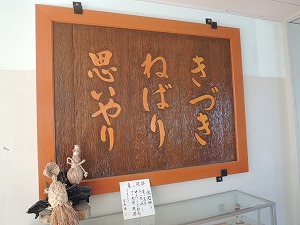 きづき
ねばり
思いやり